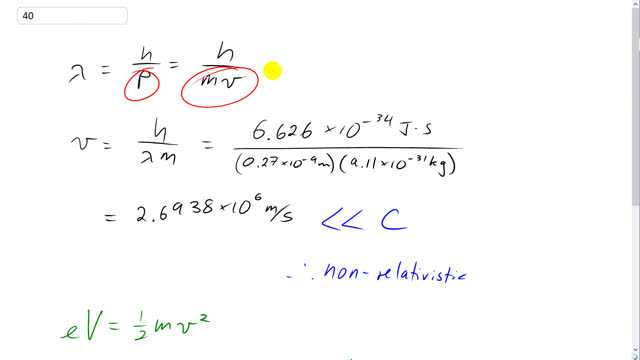 40
λ = h/p = h/mv
v = h/λm = 6.626 × 10^-34 J·s / (0.27 × 10^-9 m)(9.11 × 10^-31 kg)
= 2.6938 × 10^6 m/s << C
∴ non-relativistic
eV = 1/2 mv²